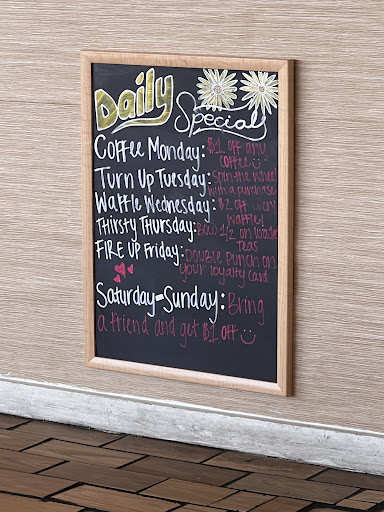 Daily
Special
Coffee Monday: $1 off any
coffee
Turn Up Tuesday: Spin the wheel
with a purchase
Waffle Wednesday: $2 off every
waffle!
Thirsty Thursday: BOGO 1/2 on loaded
teas
FIRE UP Friday: Double punch on
your loyalty card
Saturday-Sunday: Bring
a friend and get $1 off